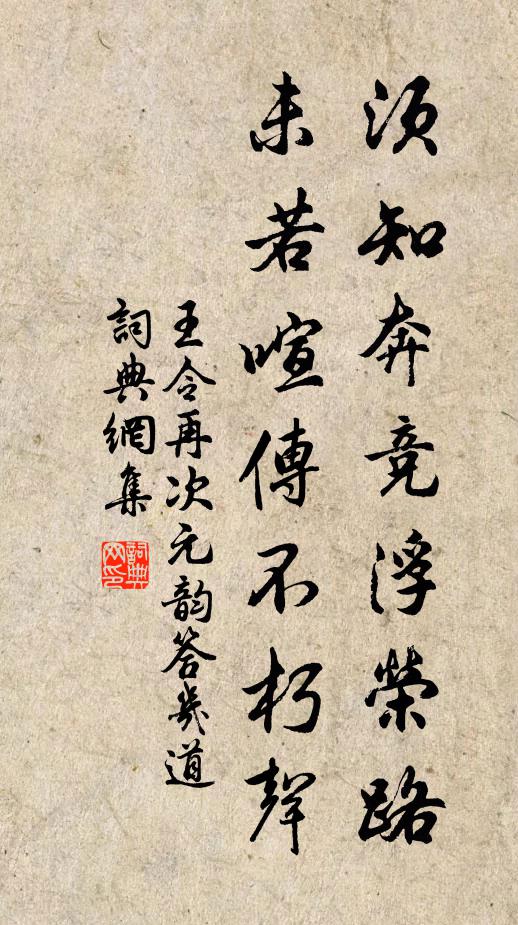 須知奔競浮榮路
未若喧傳不朽聲
王令再次元韵答幾道
詞典網集
詞典
网印